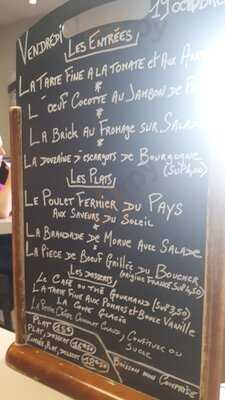 VENDREDI 19 OCTOBRE
LES ENTRÉES
LA TARTE FINE A LA TOMATE ET AUX
L'OEUF COCOTTE AU JAMBON DE
LA BRICK AU FROMAGE SUR SALADE
LA DOUZAINE D'ESCARGOTS DE BOURGOGNE
(SUP 4,00)
LES PLATS
LE POULET FERMIER DU PAYS
AUX SAVEURS DU SOLEIL
LA BRANDADE DE MORUE AVEC SALADE
LA PIÈCE DE BOEUF GRILLÉE DU BOUCHER
(origine FRANCE SUP 4,50)
LES DESSERTS
LE CAFÉ OU THÉ GOURMAND (SUP 3,50)
LA TARTE FINE AUX POMMES ET BOULE VANILLE
LA COUPE GLACÉE
LA PETITE CRÊPE CHOCOLAT CHAUD, CONFITURE OU
SUCRE
PLAT
PLAT, DESSERT
ENTRÉE, PLAT, DESSERT
BOISSON NON COMPRISE